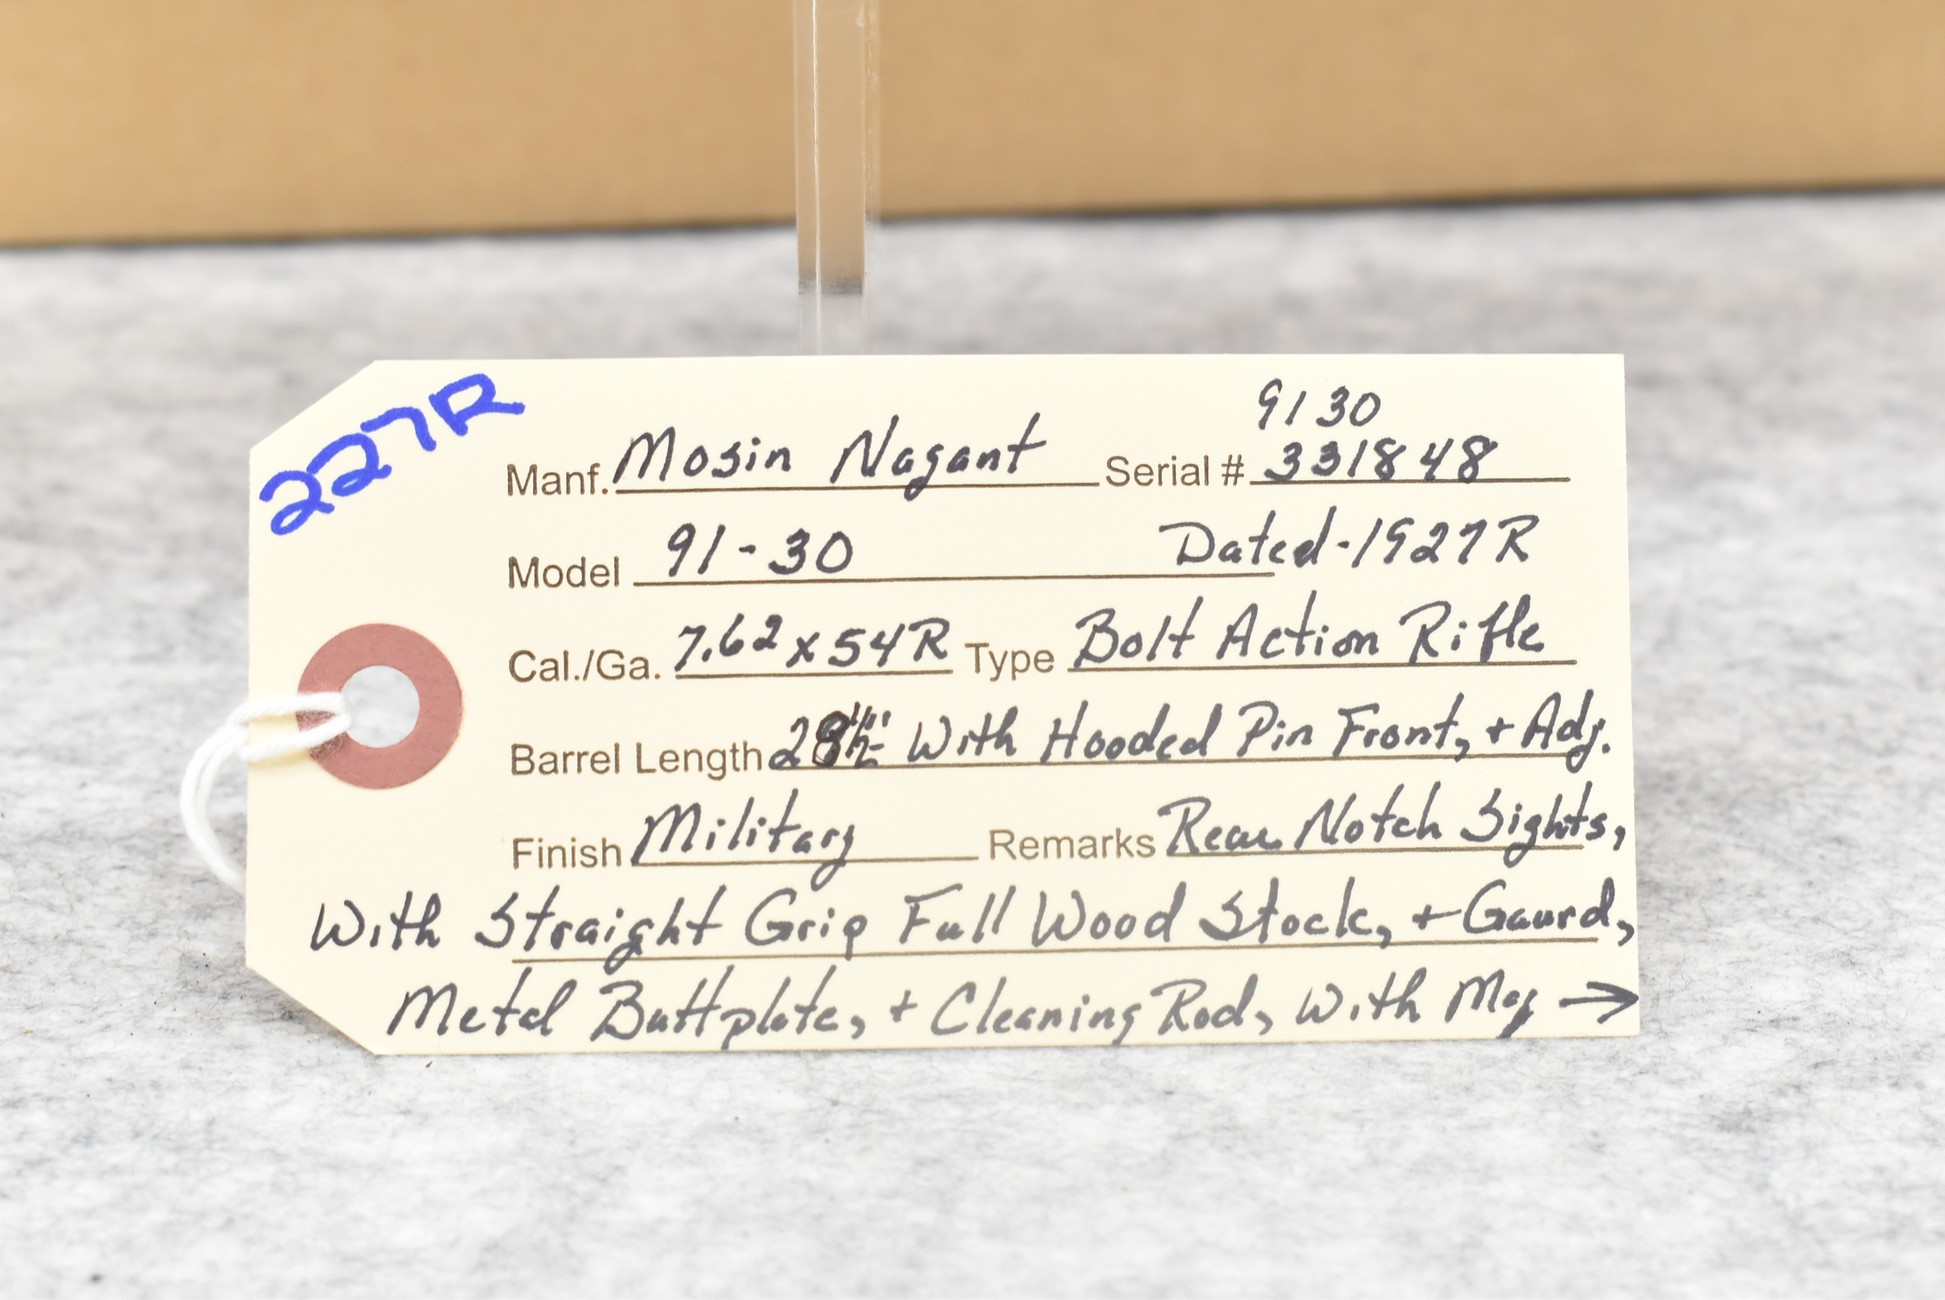 227R
9130
Manf. Mosin Nagant Serial # 331848
Model 91-30 Dated-1927R
Cal./Ga. 7.62x54R Type Bolt Action Rifle
Barrel Length 28½" With Hooded Pin Front, + Adj.
Finish Military Remarks Rear Notch Sights,
With Straight Grip Full Wood Stock, + Gaurd,
Metal Buttplate, + Cleaning Rod, With Mag →